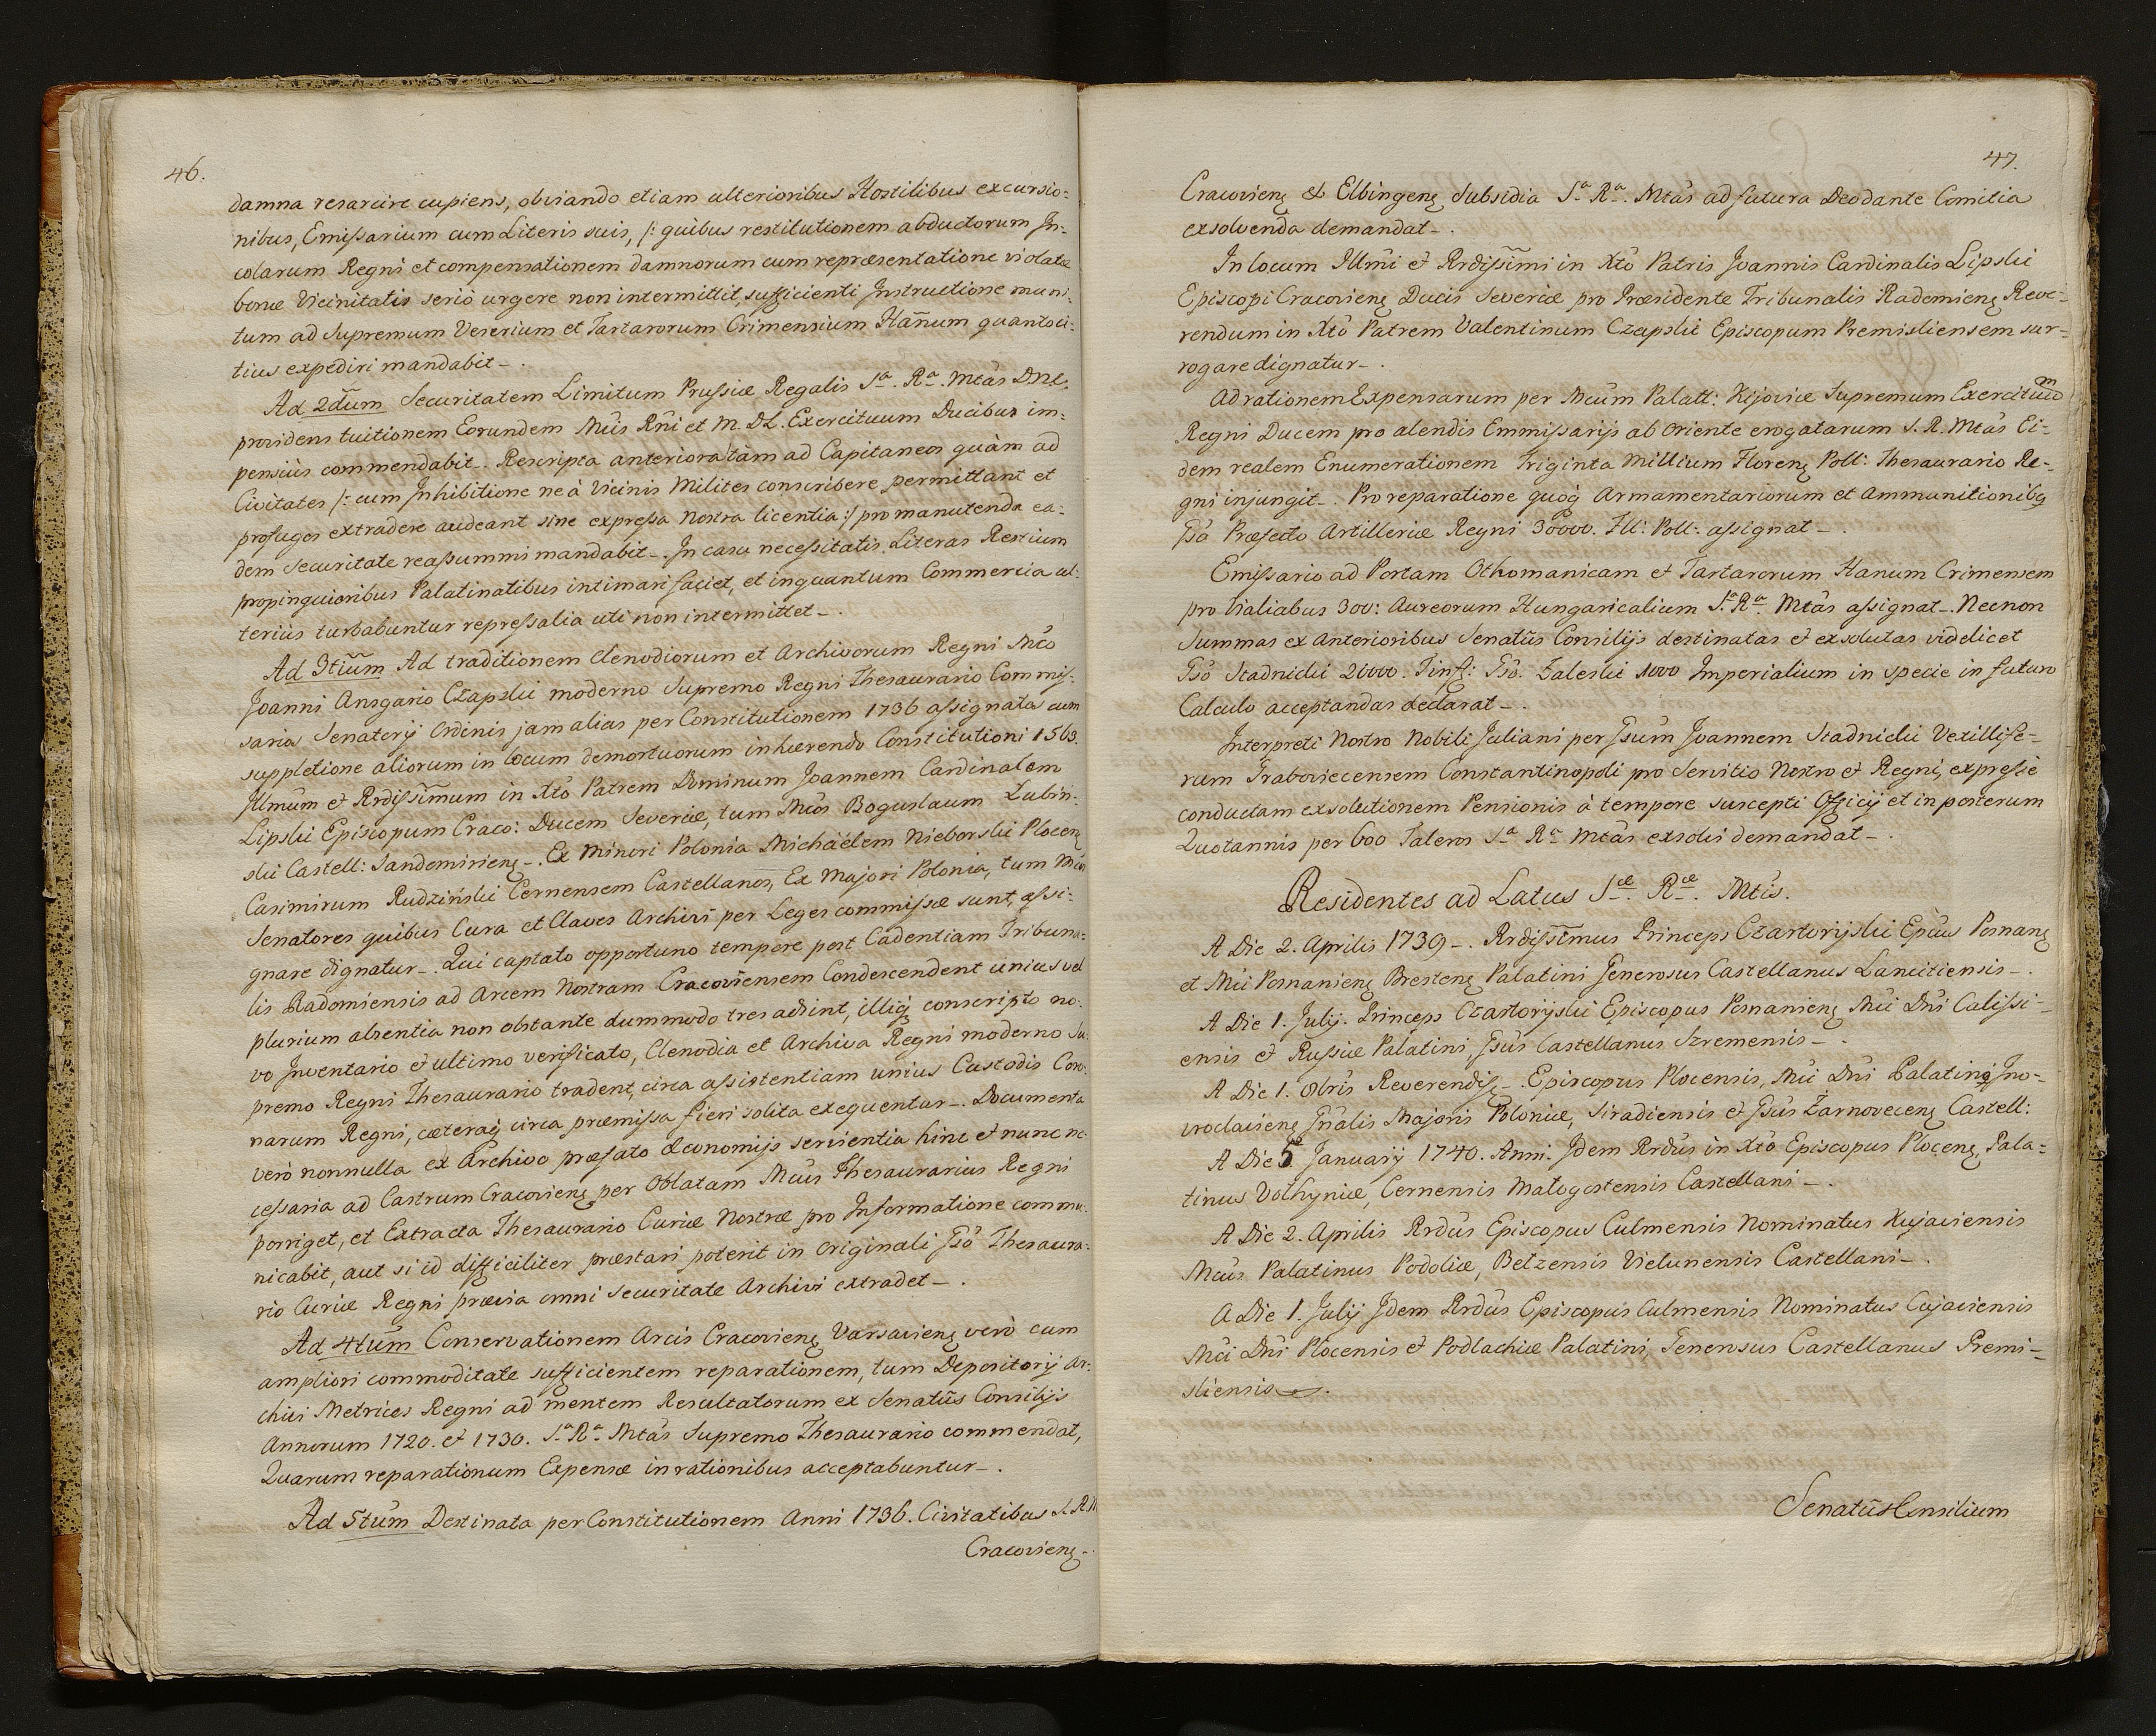 46.
damna resarcire cupiens, obviando etiam ulterioribus Hostilibus excursio=
nibus, Emißarium cum Literis suis, /: quibus restitutionem abductorum In=
colarum Regni et compensationem damnorum cum repræsentatione violatæ
bonæ Vicinitatis seriò urgere non intermittit, sufficienti Instructione muni=
tum ad Supremum Vesirium et Tartarorum Crimensium Hañum quantoci=
tius expediri mandabit_.
Ad 2dum Securitatem Limitum Prußiæ Regalis S.a R.a Mtas Dne.
providens tuitionem Eorundem Mcis Rni et M. D L. Exercituum Ducibus im=
pensiùs commendabit_. Rescripta anteriora tàm ad Capitaneos quàm ad
Civitates /: cum Inhibitione ne à Vicinis Milites conscribere permittant et
profugos extradere audeant sine expreßa Nostra licentia :/ pro manutenda ea=
dem Securitate reaßummi mandabit_. In casu neceßitatis Literas Restium
propinquioribus Palatinatibus intimari faciet, et inquantum Commercia ul=
teriùs turbabuntur repreßalia uti non intermittet_.
Ad 3tium Ad traditionem Clenodiorum et Archivorum Regni Mco
Joanni Ansgario Czapski moderno Supremo Regni Thesaurario Commiß=
sarios Senatorij Ordinis jam alias per Constitutionem 1736 aßignatos cum
suppletione aliorum in locum demortuorum inhærendo Constitutioni 1563.
Illmum et Rdißimum in Xto Patrem Dominum Joannem Cardinalem
Lipski Episcopum Craco: Ducem Severiæ, tum Mcos Boguslaum Lubin=
ski Castell: Sandomirienȩ_. Ex Minori Polonia Michaëlem Nieborski Plocenȩ
Casimirum Rudziński Cernensem Castellanos, Ex Majori Polonia, tum Mcos
Senatores quibus Cura et Claves Archivi per Leges commißæ sunt, aßi=
gnare dignatur_. Qui captato opportuno tempore post Cadentiam Tribuna=
lis Radomiensis ad Arcem Nostram Cracoviensem Condescendent unius vel
plurium absentia non obstante dummodo tres adsint, illiq; conscripto no=
vo Inventario et ultimo verificato, Clenodia et Archiva Regni moderno Su=
premo Regni Thesaurario tradent, circa aßistentiam unius Custodis Coro=
narum Regni, cæteraq; circa præmißa fieri solita exequentur_. Documenta
verò nonnulla ex Archivo præfato Œconomijs servientia hinc et nunc ne=
ceßaria ad Castrum Cracovienȩ per Oblatam Mcus Thesaurarius Regni
porriget, et Extracta Thesaurario Curiæ Nostræ pro Informatione commu=
nicabit, aut si id difficiliter præstari poterit in Originali Gso Thesaura=
rio Curiæ Regni prævia omni Securitate Archivi extradet_.
Ad 4tum Conservationem Arcis Cracovienȩ Varsavienȩ verò cum
ampliori commoditate sufficientem reparationem, tum Depositorij Ar=
chivi Metrices Regni ad mentem Resultatorum ex Senatûs Consilijs
Annorum 1720. et 1730. S.a R.a Mtas Supremo Thesaurario commendat,
Quarum reparationum Expensæ in rationibus acceptabuntur_.
Ad 5tum Destinata per Constitutionem Anni 1736. Civitatibus S. R. M
Cracovienȩ_.
47.
Cracovienȩ et Elbingenȩ Subsidia S.a R.a Mtas ad futura Deodante Comitia
exsolvenda demandat_.
In locum Illmi et Rdißimi in Xto Patris Joannis Cardinalis Lipski
Episcopi Cracovienȩ Ducis Severiæ pro Præsidente Tribunalis Radomienȩ Reve=
rendum in Xto Patrem Valentinum Czapski Episcopum Premisliensem sur=
rogare dignatur_.
Ad rationem Expensarum per Mcum Palatt: Kijoviæ Supremum Exercituum
Regni Ducem pro alendis Emmißarijs ab Oriente erogatarum S. R. Mtas Ei=
dem realem Enumerationem Triginta Millium Florenȩ Poll: Thesaurario Re=
gni injungit_. Pro reparatione quoq; Armamentariorum et Ammunitionibȩ
Gso Præfecto Artilleriæ Regni 30000. Fll: Poll: aßignat_.
Emißario ad Portam Othomanicam et Tartarorum Hanum Crimensem
pro Vialiabus 300: Aureorum Hungaricalium S.a R.a Mtas aßignat_. Necnon
Summas ex Anterioribus Senatûs Consilijs destinatas et exsolutas videlicet
Gso Stadnicki 20000. Tinff: Gso. Zaleski 1000 Imperialium in specie in futuro
Calculo acceptandas declarat_.
Interpreti Nostro Nobili Juliani per Gsum Joannem Stadnicki Vexillife=
rum Graboviecensem Constantinopoli pro Servitio Nostro et Regni, expreßè
conductam exsolutionem Pensionis à tempore suscepti Officij et in posterum
Quotannis per 600 Taleros S.a R.a Mtas exsolvi demandat_.
Residentes ad Latus S.æ R.æ Mtis.
A Die 2. Aprilis 1739_. Rdißimus Princeps Czartoryski Epcus Posnanȩ
et Mci Posnanienȩ Brestenȩ Palatini Generosus Castellanus Lanciciensis_.
A Die 1. Julij. Princeps Czartoryski Episcopus Posnanienȩ Mci Dni Calißi=
ensis et Rußiæ Palatini, Gsus Castellanus Szremensis_.
A Die 1. 8bris Reverendiß_. Episcopus Plocensis, Mci Dni Palatinȩ Ino=
vroclavienȩ Gnalis Majoris Poloniæ, Siradiensis et Gsus Zarnovecenȩ Castell:
A Die 5 Januarij 1740. Anni. Idem Rdus in Xto Episcopus Plocenȩ, Pala=
tinus Volhyniæ, Cernensis Malogostensis Castellani_.
A Die 2. Aprilis Rdus Episcopus Culmensis Nominatus Kujaviensis
Mcus Palatinus Podoliæ, Belzensis Vielunensis Castellani_.
A Die 1. Julij Idem Rdus Episcopus Culmensis Nominatus Cujaviensis
Mci Dni Plocensis et Podlachiæ Palatini Generosus Castellanus Premi=
sliensis_.
Senatûs Consilium